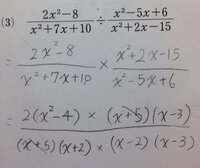 (3) \frac{2x^2-8}{x^2+7x+10} ÷ \frac{x^2-5x+6}{x^2+2x-15}
= \frac{2x^2-8}{x^2+7x+10} × \frac{x^2+2x-15}{x^2-5x+6}
= \frac{2(x^2-4) × (x+5)(x-3)}{(x+5)(x+2) × (x-2)(x-3)}